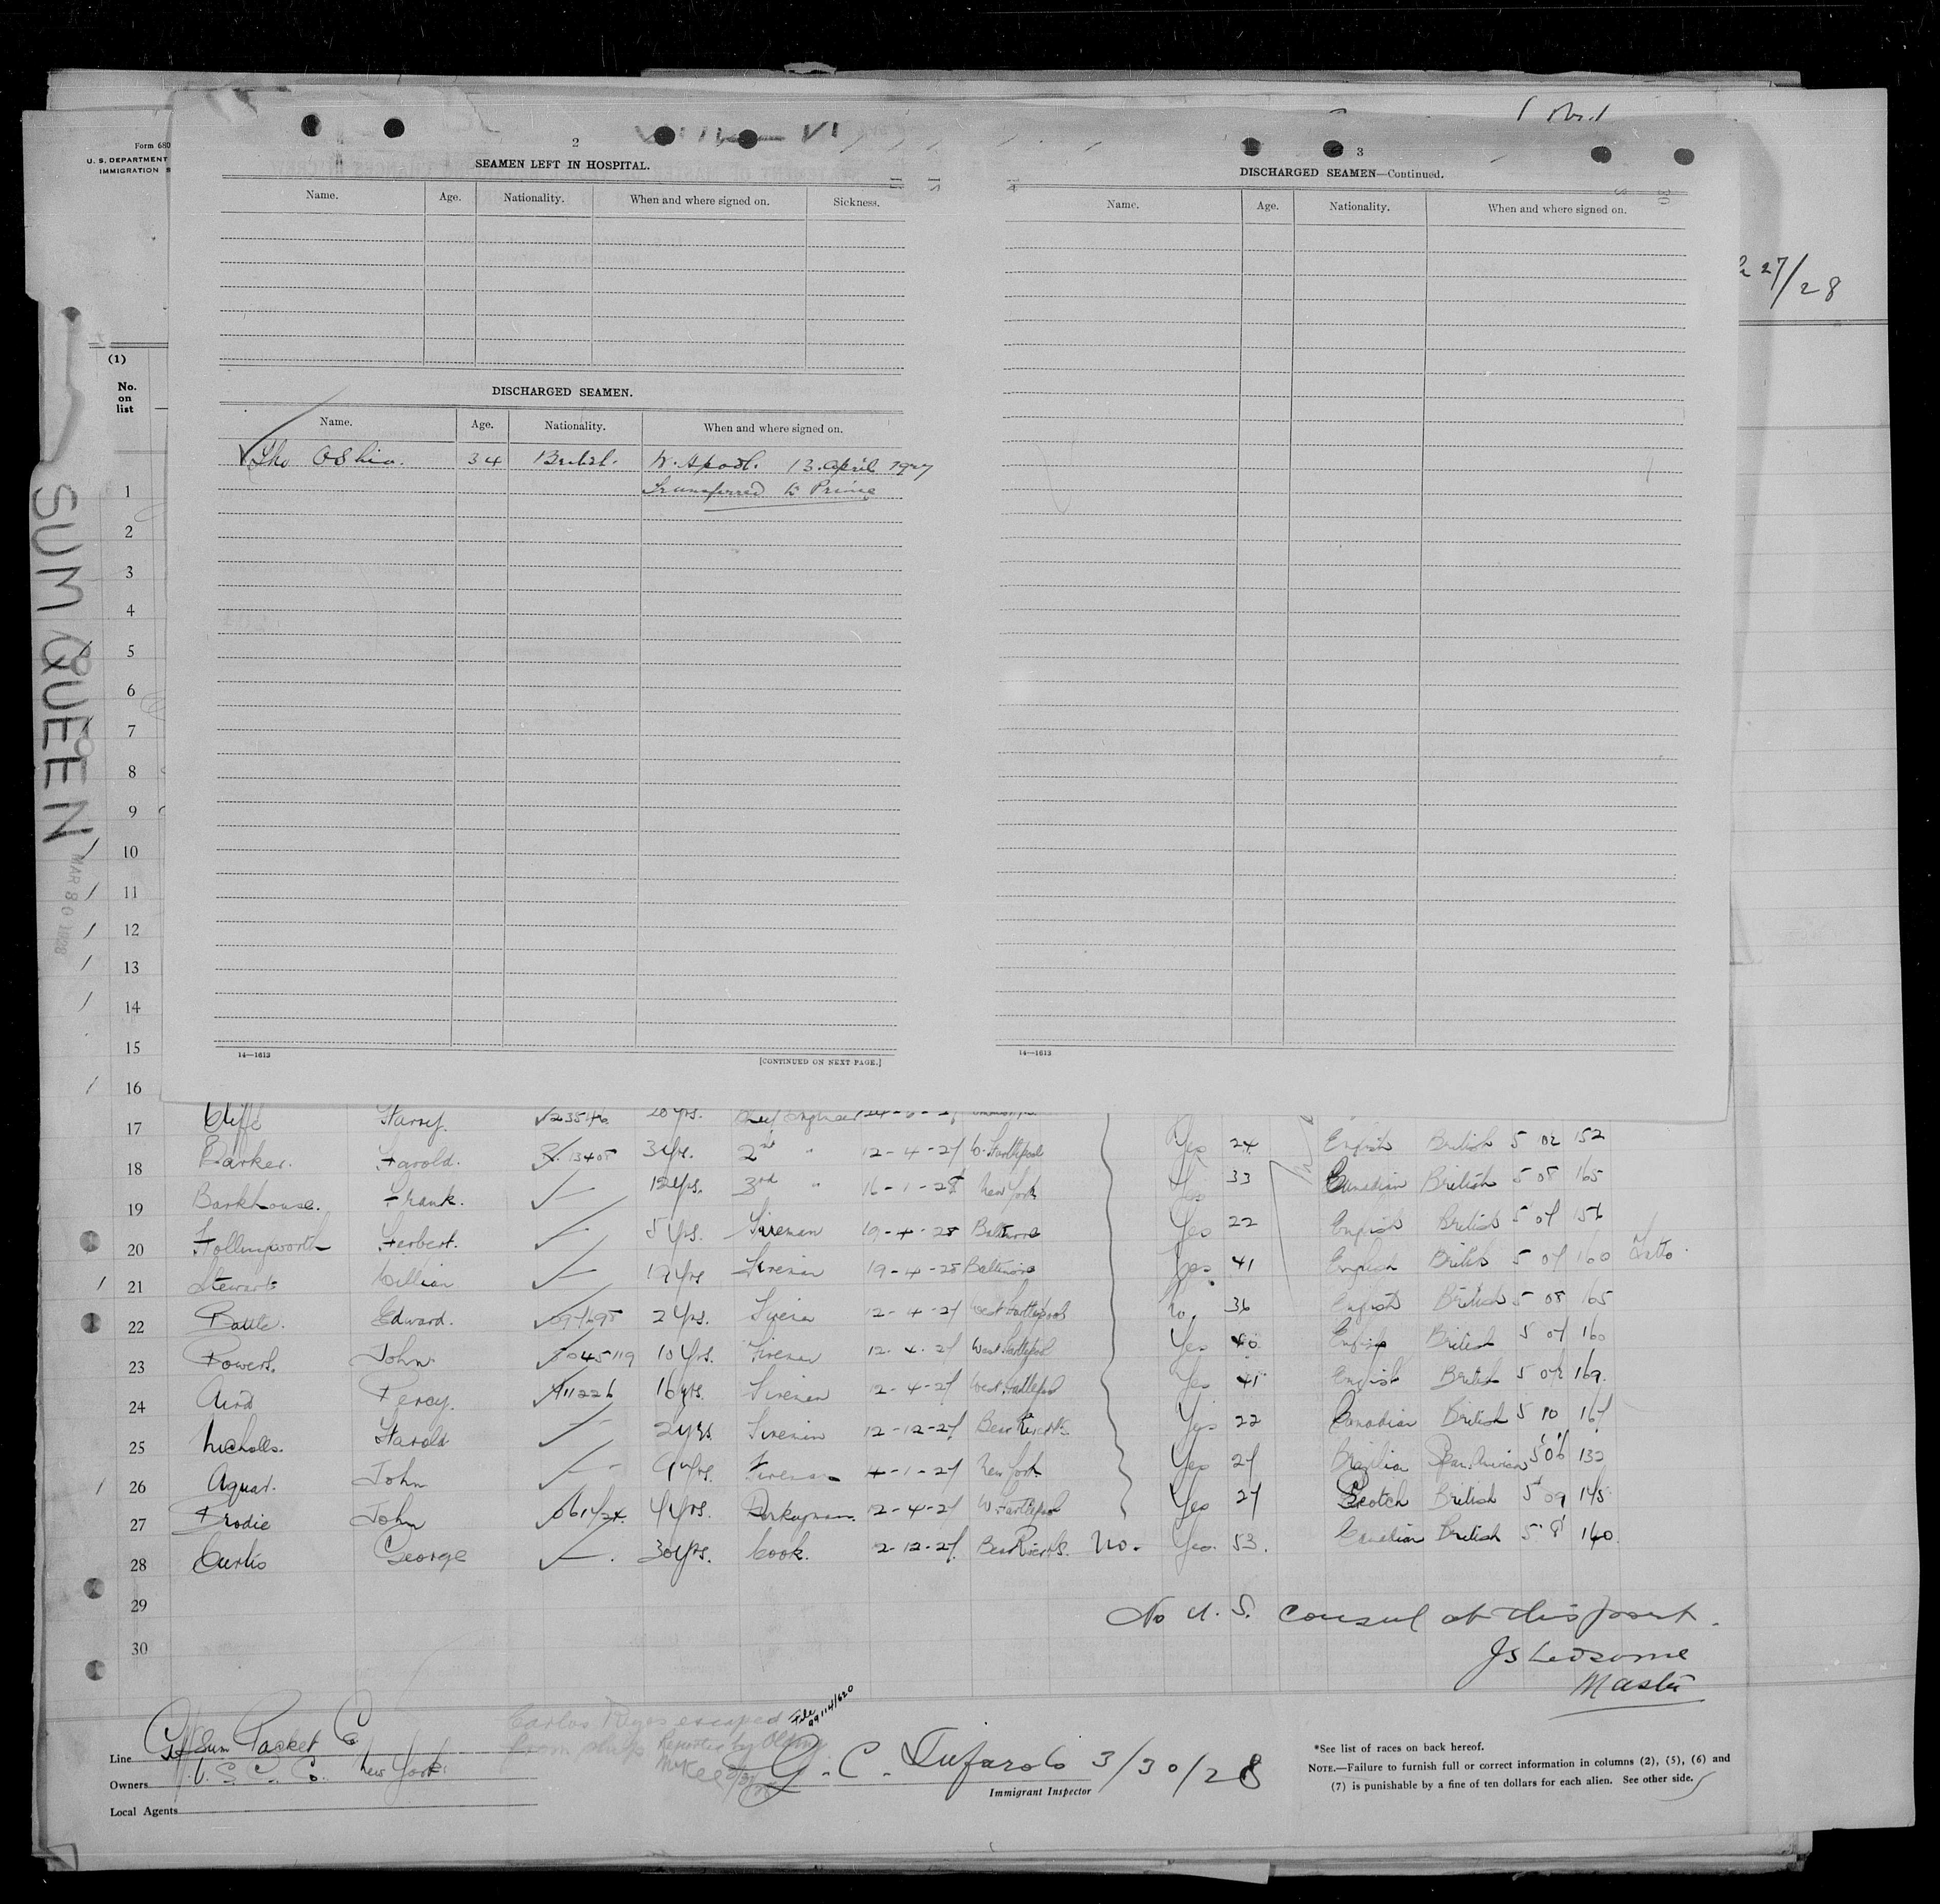 Form 680
U. S. DEPARTMENT
IMMIGRATION S
27/28
(1)
No.
on
list
SUM QUEEN
MAR 30 1928
2
SEAMEN LEFT IN HOSPITAL.
Name. Age. Nationality. When and where signed on. Sickness.
DISCHARGED SEAMEN.
Name. Age. Nationality. When and where signed on.
34 British. 13 April 1927
Transferred to Prince
14—1613 [CONTINUED ON NEXT PAGE.]
3
DISCHARGED SEAMEN—Continued.
Name. Age. Nationality. When and where signed on.
14—1613
1
2
3
4
5
6
7
8
9
10
11
12
13
14
15
16
17 Cliff Harry. 23546 20 yrs.
18 Barker. Harold. 13405 3 yr. 2nd " 12-4-27 W. Hartlepool Yes 24 English British 5 02 152
19 Barkhouse. Frank. 12 yrs. 3rd " 16-1-28 New York Yes 33 Canadian British 5 08 165
20 Hollingworth Herbert. 5 yrs. Fireman 19-4-28 Baltimore Yes 22 English British 5 07 156
21 Stewart William 19 yrs Fireman 19-4-28 Baltimore Yes 41 English British 5 07 160
22 Battle. Edward. 2 yrs. Fireman 12-4-27 West Hartlepool 36 English British 5 08 165
23 Powers. John 1045119 10 yrs. Fireman 12-4-27 West Hartlepool Yes 40 English British 5 07 160
24 Aird Percy. 911226 16 yrs. Fireman 12-4-27 West Hartlepool Yes 41 English British 5 07 169
25 Nicholls. Harold 2 yrs. Fireman 12-12-27 Bear River N.S. Yes 22 Canadian British 5 10 167
26 Aquar. John 9 yrs. Fireman 4-1-27 New York Yes 27 Brazilian 5 06 132
27 Brodie John 4 yrs. Donkeyman 12-4-27 W. Hartlepool Yes 27 Scotch British 5 09 145
28 Curtis George 30 yrs. Cook. 2-12-27 Bear River N.S. No. Yes. 53. Canadian British 5' 8" 160
29
30
No U. S. Consul at this port.
Js Ledsome
Master
Line Gypsum Packet Co
Owners New York
Local Agents
Carlos Reyes escaped
from ship Reported by
File 99114/620
G. C. Tufarolo 3/30/28
Immigrant Inspector
*See list of races on back hereof.
NOTE.—Failure to furnish full or correct information in columns (2), (5), (6) and
(7) is punishable by a fine of ten dollars for each alien. See other side.